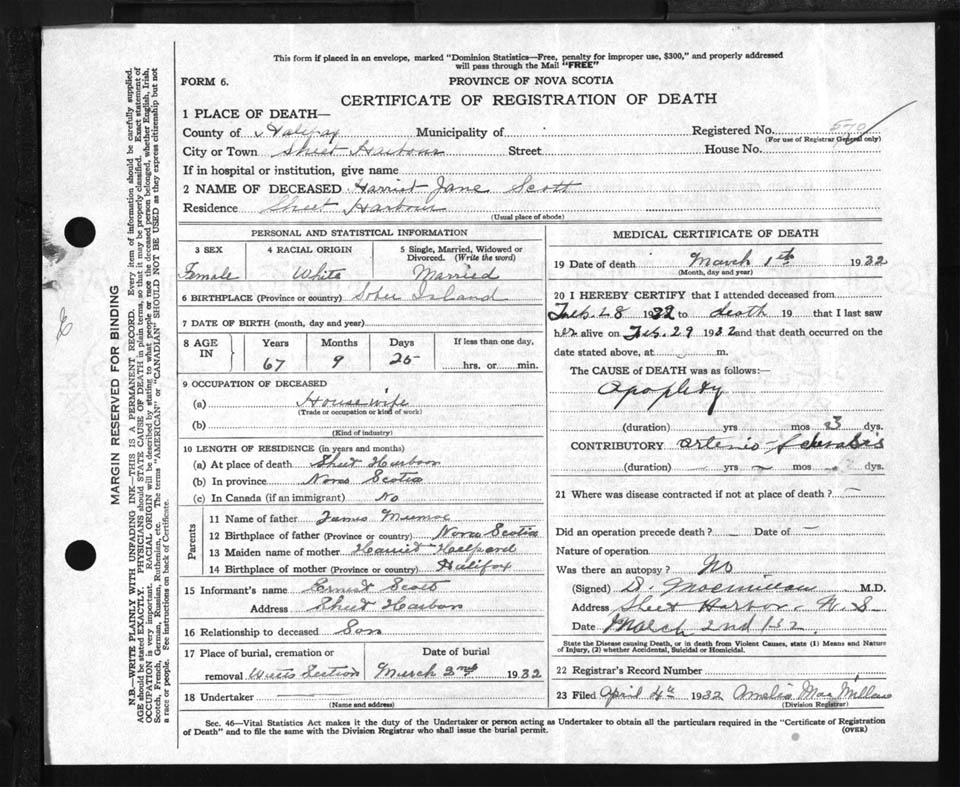 This form if placed in an envelope, marked "Dominion Statistics—Free, penalty for improper use, $300," and properly addressed
will pass through the Mail "FREE"
FORM 6.
PROVINCE OF NOVA SCOTIA
CERTIFICATE OF REGISTRATION OF DEATH
1 PLACE OF DEATH—
County of Halifax Municipality of Registered No.
(For use of Registrar General only)
City or Town Sheet Harbour Street House No.
If in hospital or institution, give name
2 NAME OF DECEASED Harriet Jane Scott
Residence Sheet Harbour
(Usual place of abode)
PERSONAL AND STATISTICAL INFORMATION
3 SEX 4 RACIAL ORIGIN 5 Single, Married, Widowed or
Divorced. (Write the word)
Female White Married
6 BIRTHPLACE (Province or country) Sober Island
7 DATE OF BIRTH (month, day and year)
8 AGE IN Years Months Days If less than one day,
67 9 25 hrs. or min.
9 OCCUPATION OF DECEASED
(a) Housewife
(Trade or occupation or kind of work)
(b)
(Kind of industry)
10 LENGTH OF RESIDENCE (in years and months)
(a) At place of death Sheet Harbour
(b) In province Nova Scotia
(c) In Canada (if an immigrant) No
Parents
11 Name of father James Munroe
12 Birthplace of father (Province or country) Nova Scotia
13 Maiden name of mother Harriet
14 Birthplace of mother (Province or country) Halifax
15 Informant's name Ernest Scott
Address Sheet Harbour
16 Relationship to deceased Son
17 Place of burial, cremation or Date of burial
removal Watts Section March 2nd 1932
18 Undertaker
(Name and address)
MEDICAL CERTIFICATE OF DEATH
19 Date of death March 1th 1932
(Month, day and year)
20 I HEREBY CERTIFY that I attended deceased from
Feb. 28 1932 to death 19 that I last saw
her alive on Feb. 29 1932 and that death occurred on
date stated above, at m.
The CAUSE of DEATH was as follows:—
Apoplexy
(duration) yrs mos 3 dys.
CONTRIBUTORY arterio-
(duration) yrs mos dys.
21 Where was disease contracted if not at place of death? —
Did an operation precede death? — Date of —
Nature of operation
Was there an autopsy? No
(Signed) D. M.D.
Address Sheet Harbor N. S.
Date March 2nd 132
State the Disease causing Death, or in death from Violent Causes, state (1) Means and Nature
of Injury, (2) whether Accidental, Suicidal or Homicidal.
22 Registrar's Record Number
23 Filed April 4th 1932 Amelia MacMillan
(Division Registrar)
Sec. 46—Vital Statistics Act makes it the duty of the Undertaker or person acting as Undertaker to obtain all the particulars required in the "Certificate of Registration
of Death" and to file the same with the Division Registrar who shall issue the burial permit.
(OVER)
MARGIN RESERVED FOR BINDING
N.B.—WRITE PLAINLY WITH UNFADING INK—THIS IS A PERMANENT RECORD. Every item of information should be carefully supplied.
AGE should be stated EXACTLY. PHYSICIANS should STATE CAUSE OF DEATH in plain terms, so that it may be properly classified. Exact statement of
OCCUPATION is very important. RACIAL ORIGIN will be described by stating to what people or race the deceased person belonged, whether English, Irish,
Scotch, French, German, Russian, Ruthenian, etc. The terms "AMERICAN" or "CANADIAN" SHOULD NOT BE USED as they express citizenship but not
a race or people. See instructions on back of Certificate.